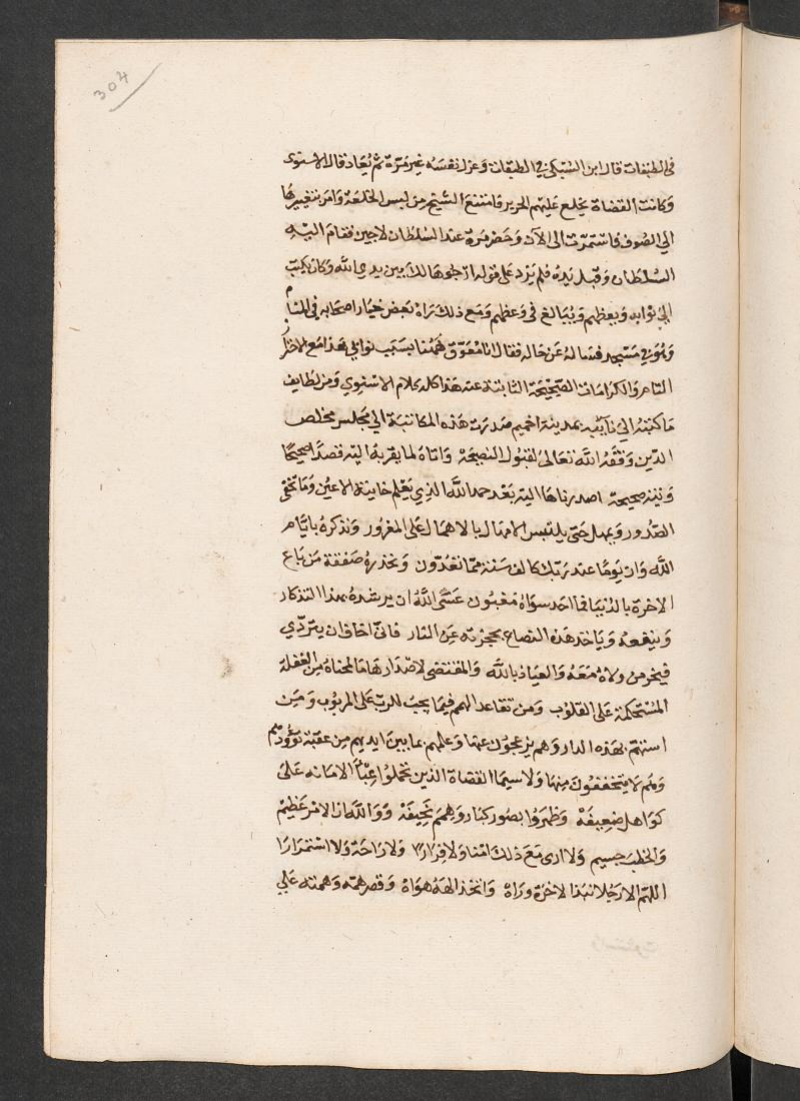 304
في الطبقات قال ابن السبكي في الطبقات وعزل نفسه غير مرة ثم يعاد قال الاسنوى
وكانت القضاة يخلع عليهم الحرير فامتنع الشيخ من لبس الخلعة وامر بتغييرها
الي الصوف فاستمرت الى الآن وحضر مرة عند السلطان لاجين فقام اليه
السلطان وقبل يده فلم يزد على قوله ارجوها لك بين يدي الله وكان يكتب
الي نوابه ويعظهم ويبالغ في وعظهم ومع ذلك رآه بعض خيار اصحابه في المنام
وهو في مسجد فساله عن حاله فقال انا معوّق ههنا بسبب نوابي هذا مع الاحتراز
التام والكرامات الصحيحة الثابتة عنه هذا كله كلام الاسنوي ومن لطايف
ما كتبه الي نايبه بمدينة اخميم صدرت هذه المكاتبة الي مجلس مخلص
الدين وفقه الله تعالى لقبول النصيحة واتاه لما يقربه اليه قصدا صحيحا
ونية صحيحة اصدرناها اليه بعد حمد الله الذي يعلم خاينة الاعين وما تخفي
الصدور ويمهل حتى يلتبس الامهال بالاهمال على المغرور ونذكره بايام
الله وان يوما عند ربك كالف سنة مما تعدّون ونحذره صفقة من باع
الاخرة بالدنيا فما احد سواه مغبون عسى الله ان يرشده بهذا التذكار
وينفعه وياخذ هذه النصايح بحجزته عن النار فاني اخاف ان يتردّي
فيخر من ولاه معه والعياذ بالله والمقتضى لاصدارها ما لمحناه من الغفلة
المستحكمة على القلوب ومن تقاعد الهمم فيما يجب للرب على المربوب ومن
انسهم بهذه الدار وهم يزعجون عنها وعلمهم بما بين ايديهم من عقبة كؤود
وهم لا يتخففون منها ولا سيما القضاة الذين تحملوا اعبآ الامانه على
كواهل ضعيفة وظهروا بصور كبار وهمم نحيفة ووالله ان الامر عظيم
والخطب جسيم ولا ارى مع ذلك امنا ولا قرارا ولا راحة ولا استمرارا
اللهم الا رجلا نبذ الاخرة وراه واتخذ الهه هواه وقصر همه وهمته علي